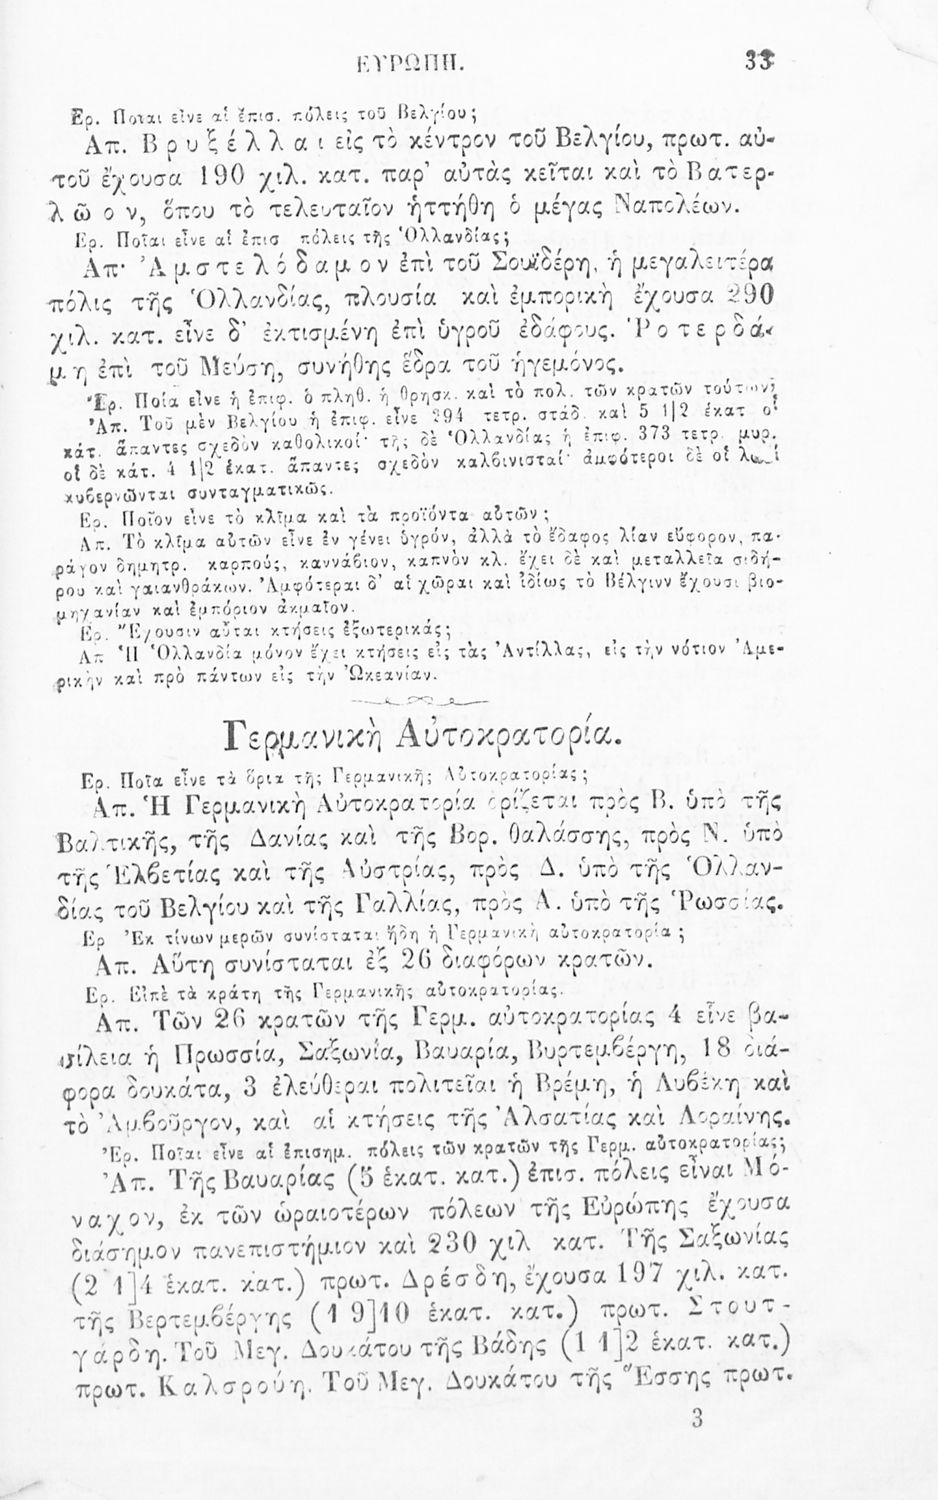 ΕΥΡΩΠΗ. 33
Ερ. Ποιαι είνε αἱ ἔπισ. πόλεις τοῦ Βελγίου;
Απ. Βρυξέλλαι εἰς τὸ κέντρον τοῦ Βελγίου, πρωτ. αὐ-
τοῦ ἔχουσα 190 χιλ. κατ. παρ' αὐτὰς κεῖται καὶ τὸ Βατερ-
λῶον, ὅπου τὸ τελευταῖον ἡττήθη ὁ μέγας Ναπολέων.
Ερ. Ποῖαι εἶνε αἱ ἐπισ πόλεις τῆς Ὁλλανδίας;
Απ· Ἀμστελόδαμον ἐπὶ τοῦ Σουϊδέρη, ἡ μεγαλειτέρα
πόλις τῆς Ὁλλανδίας, πλουσία καὶ ἐμπορικὴ ἔχουσα 290
χιλ. κατ. εἶνε δ' ἐκτισμένη ἐπὶ ὑγροῦ ἐδάφους. Ῥοτερδά-
μη ἐπὶ τοῦ Μεύση, συνήθης ἕδρα τοῦ ἡγεμόνος.
Ἐρ. Ποία εἶνε ἡ ἐπιφ. ὁ πληθ. ἡ θρησκ. καὶ τὸ πολ. τῶν κρατῶν τούτων;
Ἀπ. Τοῦ μὲν Βελγίου ἡ ἐπιφ. εἶνε 294 τετρ. στάδ. καὶ 5 1|2 ἑκατ οἱ
κάτ. ἅπαντες σχεδὸν καθολικοί· τῆς δὲ Ὁλλανδίας ἡ ἐπιφ. 373 τετρ. μυρ.
οἱ δὲ κάτ. 4 1|2 ἑκατ. ἅπαντες σχεδὸν καλβινισταί· ἀμφότεροι δὲ οἱ λαοὶ
κυβερνῶνται συνταγματικῶς.
Ερ. Ποῖον εἶνε τὸ κλῖμα καὶ τὰ προϊόντα αὐτῶν;
Απ. Τὸ κλῖμα αὐτῶν εἶνε ἐν γένει ὑγρόν, ἀλλὰ τὸ ἔδαφος λίαν εὔφορον, πα-
ράγον δημητρ. καρπούς, καννάβιον, καπνὸν κλ. ἔχει δὲ καὶ μεταλλεῖα σιδή-
ρου καὶ γαιανθράκων. Ἀμφότεραι δ' αἱ χῶραι καὶ ἰδίως τὸ Βέλγινν ἔχουσι βιο-
μηχανίαν καὶ ἐμπόριον ἀκμαῖον.
Ερ. Ἔχουσιν αὗται κτήσεις ἐξωτερικάς;
Απ Ἡ Ὁλλανδία μόνον ἔχει κτήσεις εἰς τὰς Ἀντίλλας, εἰς τὴν νότιον Ἀμε-
ρικὴν καὶ πρὸ πάντων εἰς τὴν Ὠκεανίαν.
Γερμανικὴ Αὐτοκρατορία.
Ερ. Ποῖα εἶνε τὰ ὅρια τῆς Γερμανικῆς Αὐτοκρατορίας;
Απ. Ἡ Γερμανικὴ Αὐτοκρατορία ὁρίζεται πρὸς Β. ὑπὸ τῆς
Βαλτικῆς, τῆς Δανίας καὶ τῆς Βορ. θαλάσσης, πρὸς Ν. ὑπὸ
τῆς Ἑλβετίας καὶ τῆς Αὐστρίας, πρὸς Δ. ὑπὸ τῆς Ὁλλαν-
δίας τοῦ Βελγίου καὶ τῆς Γαλλίας, πρὸς Α. ὑπὸ τῆς Ῥωσσίας.
Ερ Ἐκ τίνων μερῶν συνίσταται ἤδη ἡ Γερμανικὴ αὐτοκρατορία;
Απ. Αὕτη συνίσταται ἐξ 26 διαφόρων κρατῶν.
Ερ. Εἰπὲ τὰ κράτη τῆς Γερμανικῆς αὐτοκρατορίας.
Απ. Τῶν 26 κρατῶν τῆς Γερμ. αὐτοκρατορίας 4 εἶνε βα-
σίλεια ἡ Πρωσσία, Σαξωνία, Βαυαρία, Βυρτεμβέργη, 18 διά-
φορα δουκάτα, 3 ἐλεύθεραι πολιτεῖαι ἡ Βρέμη, ἡ Λυβέκη καὶ
τὸ Ἁμβοῦργον, καὶ αἱ κτήσεις τῆς Ἀλσατίας καὶ Λοραίνης.
Ἐρ. Ποῖαι εἶνε αἱ ἐπισημ. πόλεις τῶν κρατῶν τῆς Γερμ. αὐτοκρατορίας;
Ἀπ. Τῆς Βαυαρίας (5 ἑκατ. κατ.) ἐπισ. πόλεις εἶναι Μό-
ναχον, ἐκ τῶν ὡραιοτέρων πόλεων τῆς Εὐρώπης ἔχουσα
διάσημον πανεπιστήμιον καὶ 230 χιλ κατ. Τῆς Σαξωνίας
(2 1]4 ἑκατ. κατ.) πρωτ. Δρέσδη, ἔχουσα 197 χιλ. κατ.
τῆς Βερτεμβέργης (1 9]10 ἑκατ. κατ.) πρωτ. Στουτ-
γάρδη. Τοῦ Μεγ. Δουκάτου τῆς Βάδης (1 1]2 ἑκατ. κατ.)
πρωτ. Καλσρούη. Τοῦ Μεγ. Δουκάτου τῆς Ἕσσης πρωτ.
3